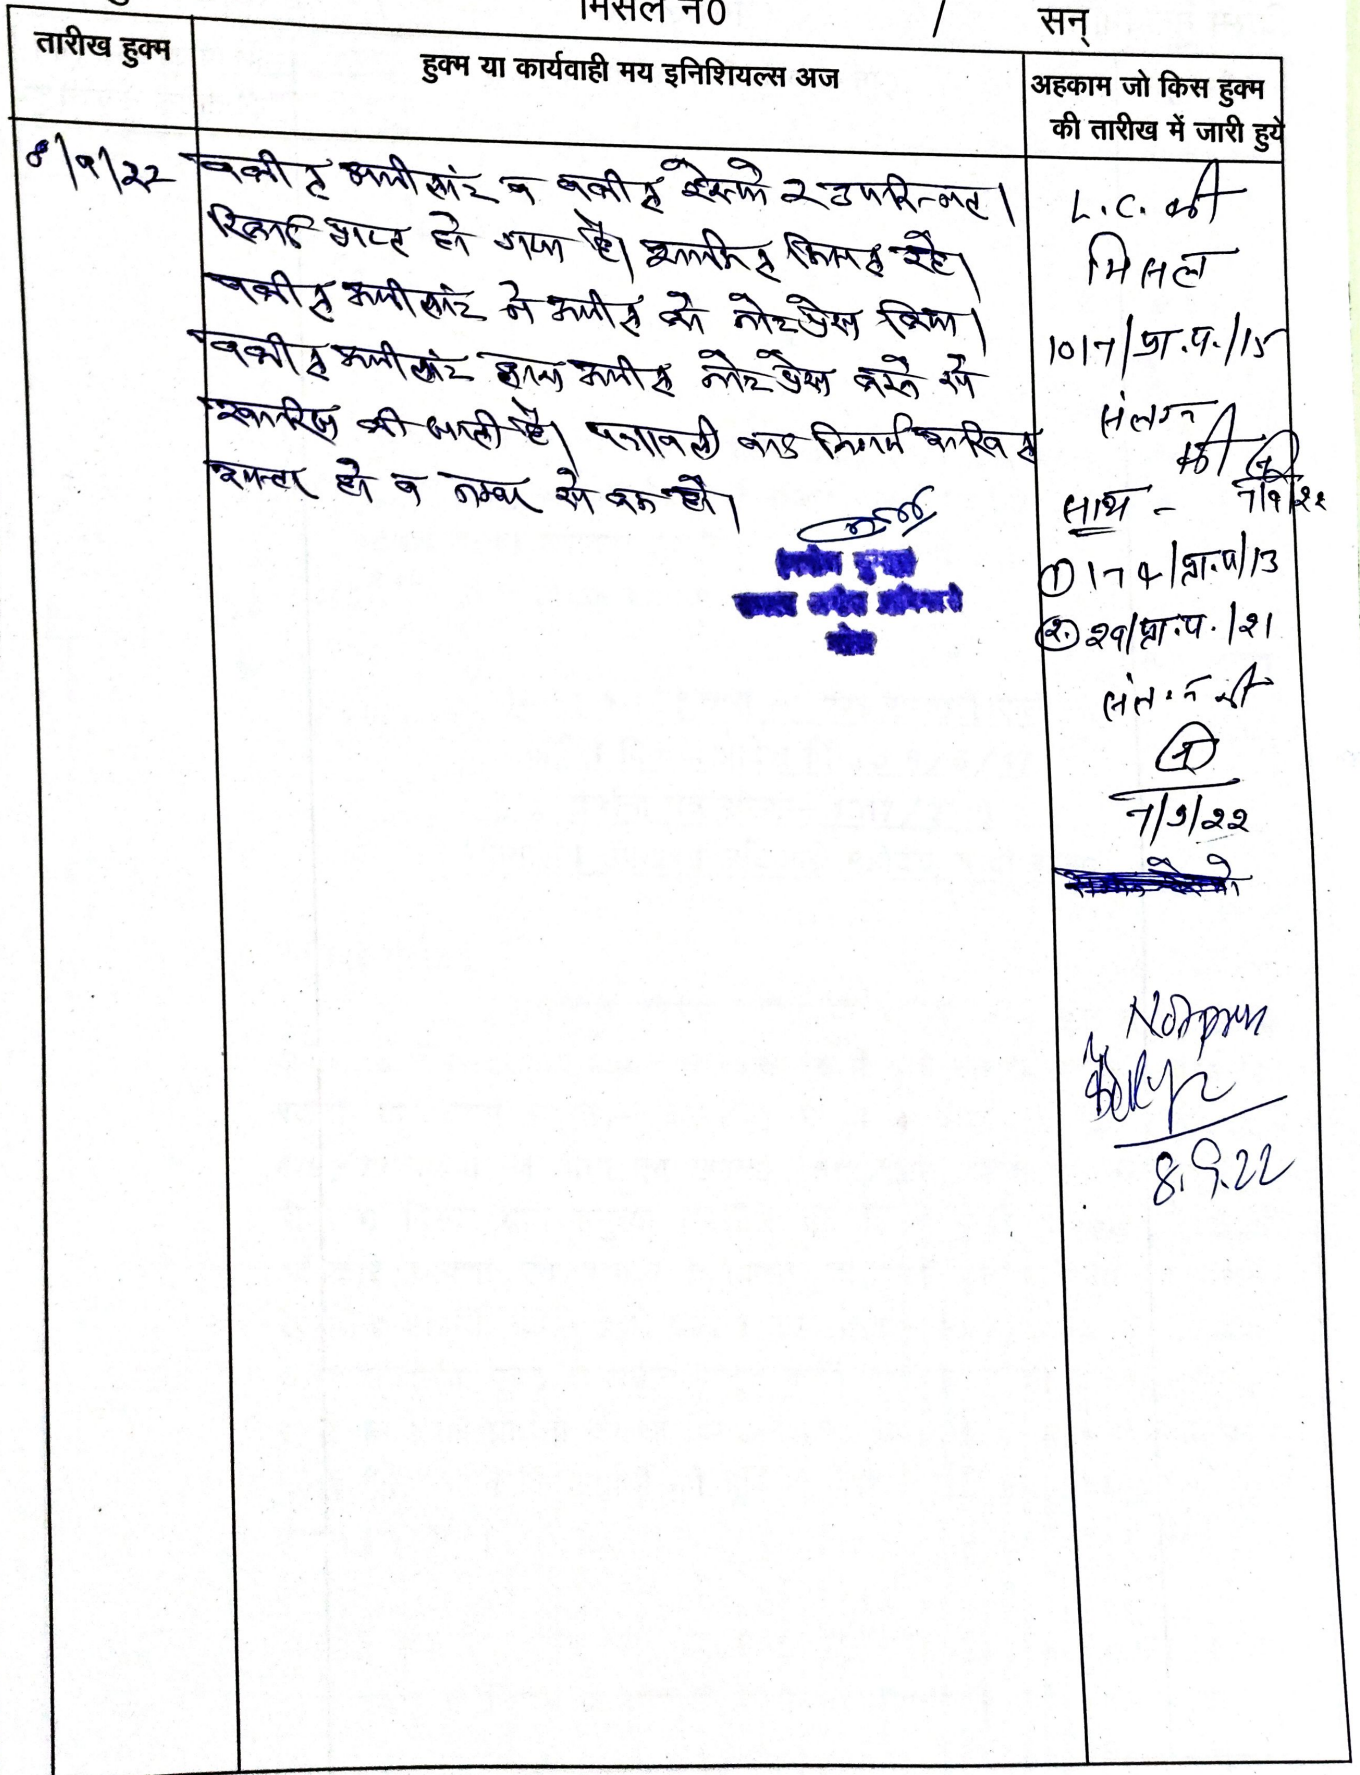 मिसल न0 / सन्
तारीख हुक्म
हुक्म या कार्यवाही मय इनिशियल्स अज
अहकाम जो किस हुक्म
की तारीख में जारी हुये
8/9/22
वकील अपीलांट व वकील रेस्पो 2 उपस्थित।
रिकार्ड प्राप्त हो गया है। शामिल मिसल रहे।
वकील अपीलांट ने अपील को नोटप्रेस किया।
वकील अपीलांट द्वारा अपील नोटप्रेस करने से
खारिज की जाती है। पत्रावली बाद निर्णय दाखिल
दफ्तर हो व नम्बर से कम हो।
L.C. की
मिसल
1017/प्रा.प./15
संलग्न
की
7/9/22
साथ -
① 174/प्रा.प/13
②. 29/प्रा.प./21
संलग्न की
7/9/22
8.9.22